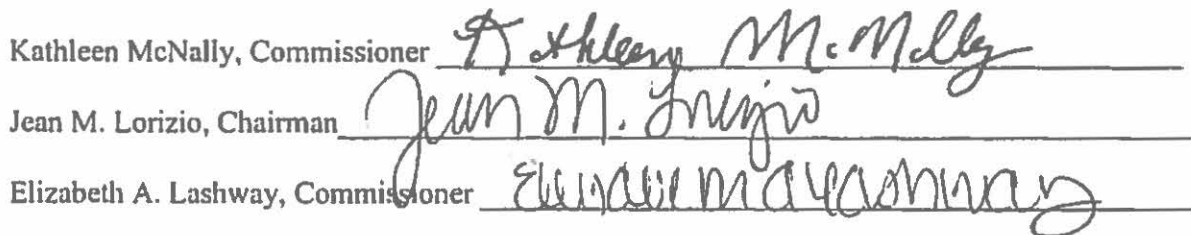 Kathleen McNally, Commissioner Kathleen McNally
Jean M. Lorizio, Chairman Jean M. Lorizio
Elizabeth A. Lashway, Commissioner